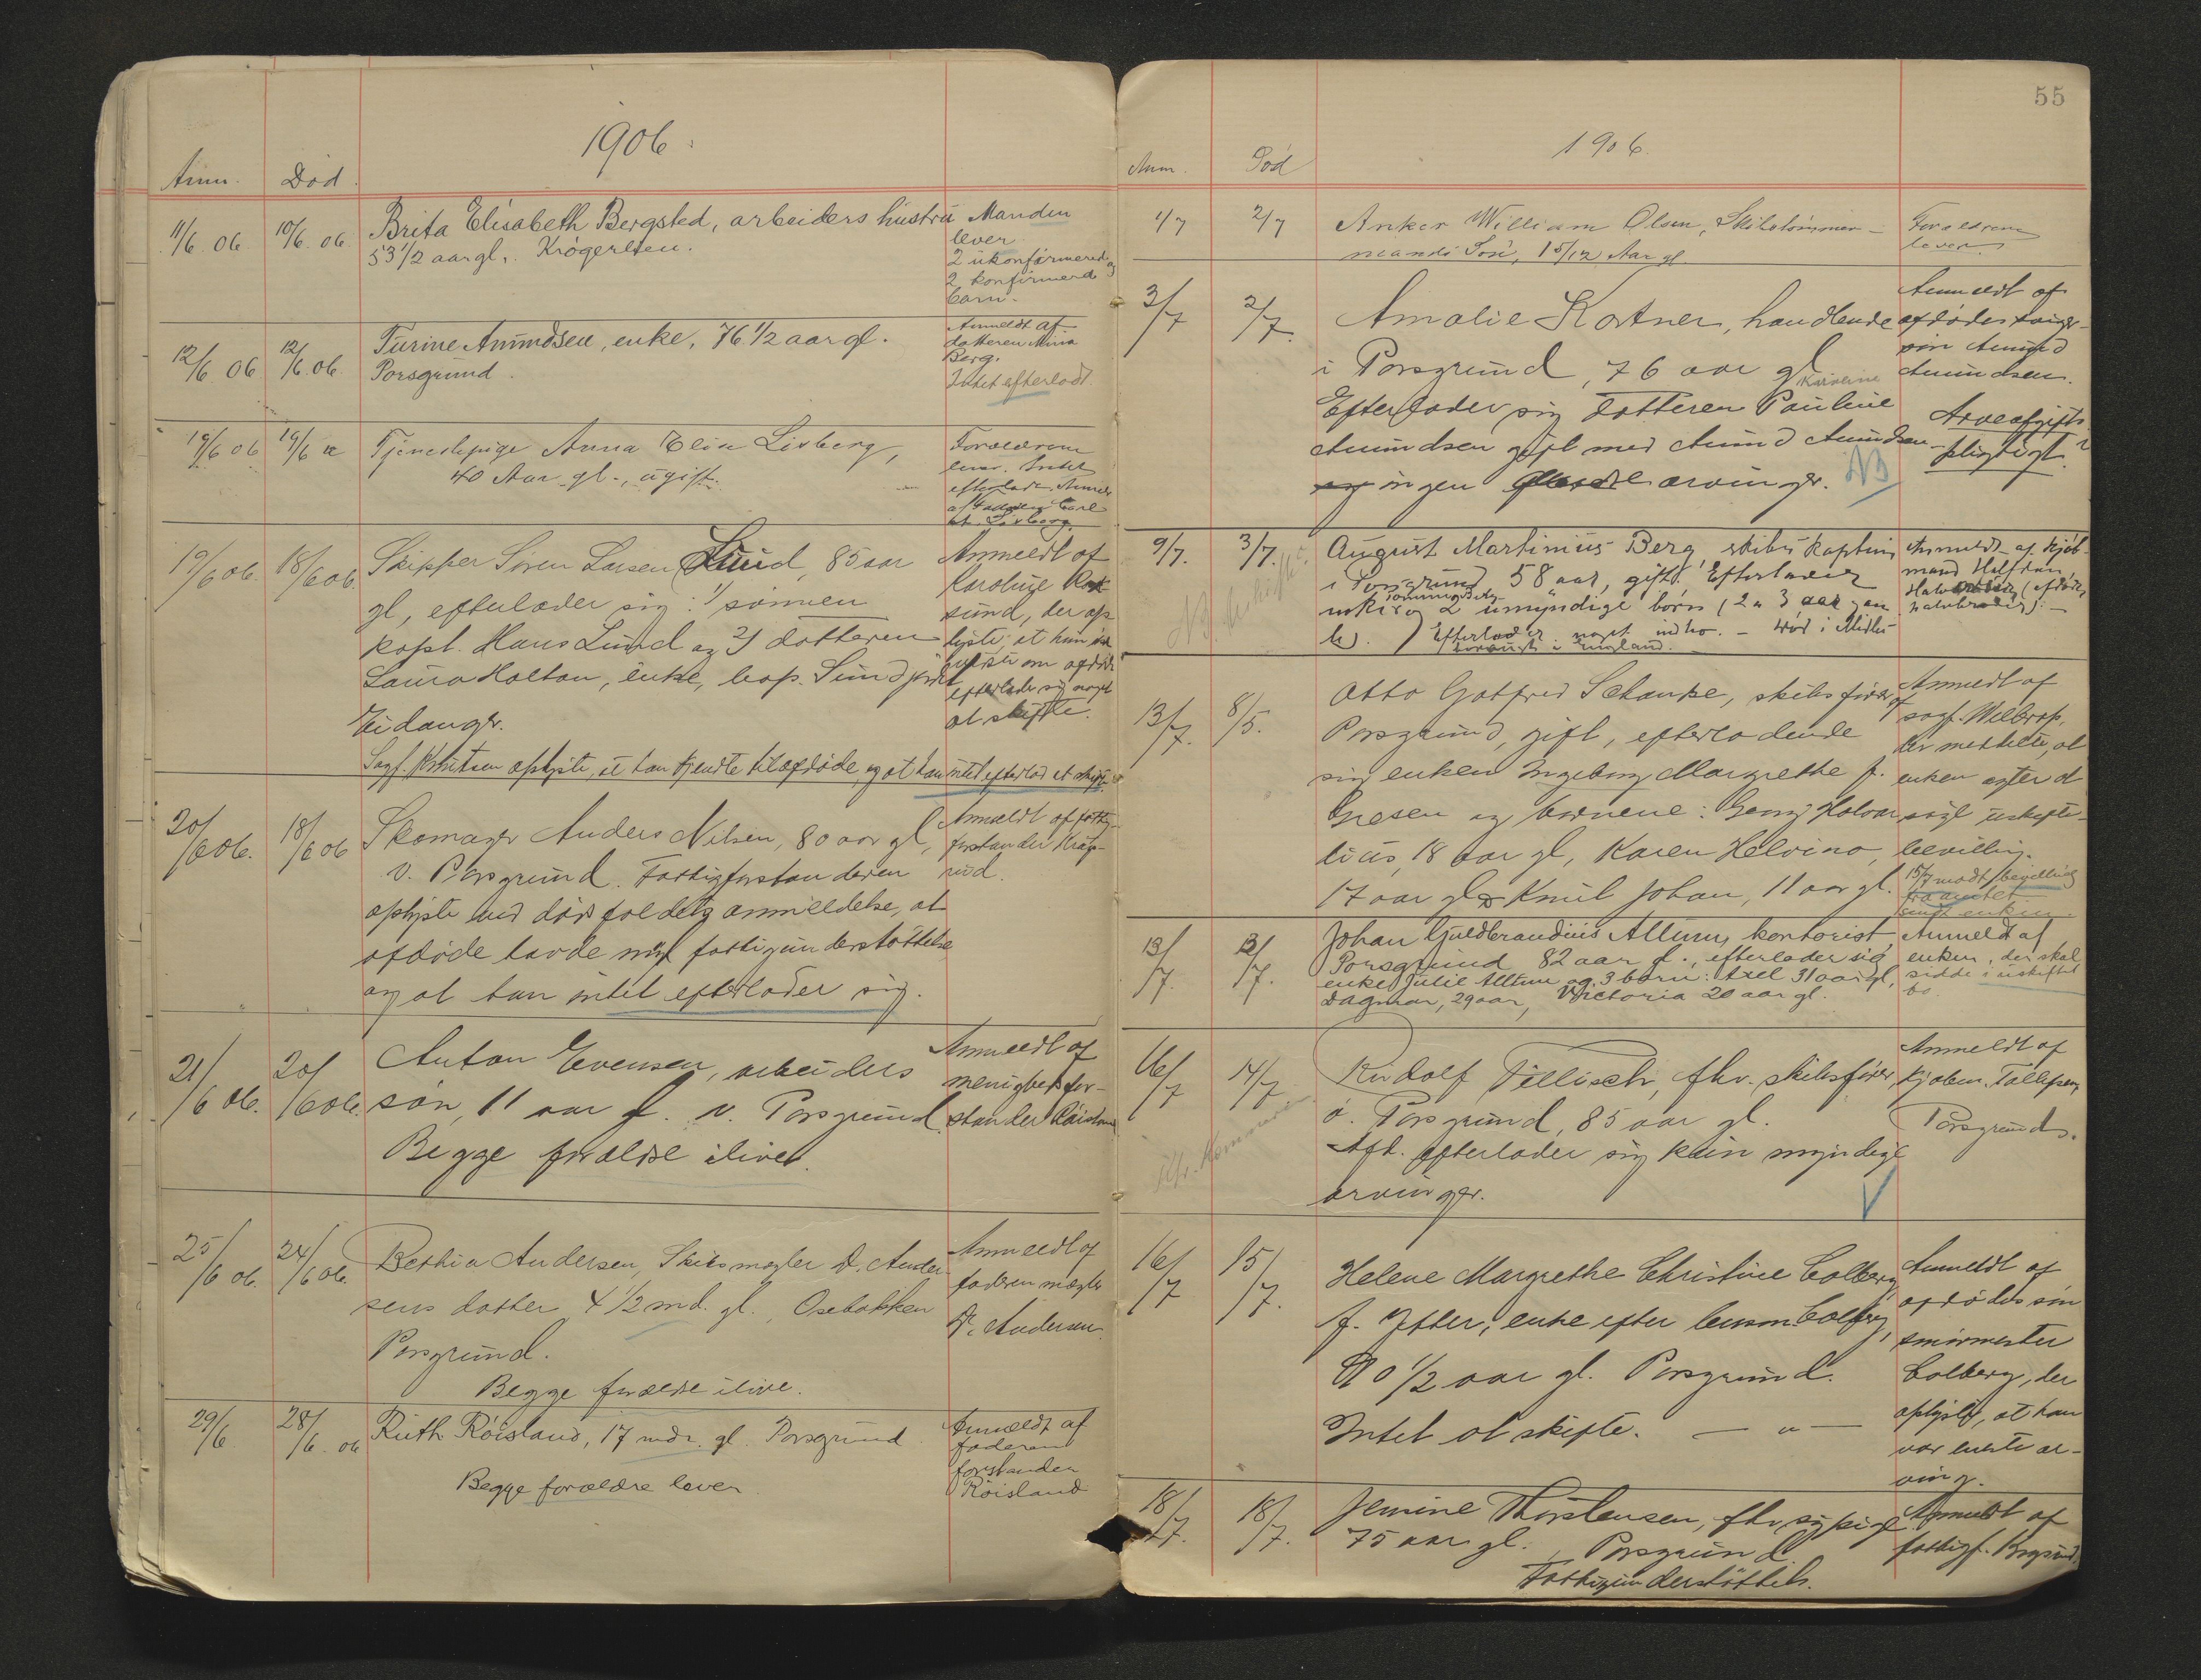 1906.
Anm. Död.
11/6 06 10/6 06 Brita Elisabeth Bergsted, arbeiders hustru Manden
53 1/2 aar gl. lever
2 ukonfirmerede og
2 konfirmerede
barn.
12/6 06 12/6 06 Turine Amundsen, enke, 76 1/2 aar gl. Anmeldt af
Porsgrund. datteren
Berg.
Intet efterladt.
19/6 06 19/6 Tjenestepige Anna Elise Lisberg, Forældrene
40 Aar gl., ugift. lever. Intet
efterladt. Anmeldt
af faderen Carl
Lisberg
19/6 06. 18/6 06. Skipper Sören Larsen Lund, 85 aar Anmeldt af
gl, efterlader sig: 1/ sönnen Karoline
kapt. Hans Lund og 2/ datteren sund, der op
Laura Holtan, enke, bop. Sundjordet lyste, at hun ikke
Eidanger. vidste om afdöde
efterlader sig noget
at skifte.
Sagf. Knutsen oplyste, at han kjendte til afdöde, og at han intet efterlod at skifte
20/6 06. 18/6 06 Skomager Anders Nilsen, 80 aar gl, Anmeldt af fattig-
v. Porsgrund. Fattigforstanderen forstander
oplyste ved dödsfaldets anmeldelse, at
afdöde havde nydt fattigunderstöttelse
og at han intet efterlader sig.
21/6 06. 20/6 06. Anton Evensen, arbeiders Anmeldt af
sön, 11 aar gl. v. Porsgrund. menighedsfor-
Begge forældre ilive. stander Röisland
25/6 06. 24/6 06. Bertha Andersen, Skibsmægler D. Ander Anmeldt af
sens datter 4 1/2 md. gl., Osebakken faderen mægler
Porsgrund. D. Andersen.
Begge forældre ilive.
29/6 28/6 06 Ruth Röisland, 17 mdr. gl. Porsgrund Anmeldt af
Begge forældre lever faderen
forstander
Röisland
55
1906.
Anm. Död
1/7 2/7 Anker William Olsen, Skibstömmer- Forældrene
mands Sön, 15/12 Aar gl. lever
3/7 2/7. Amalie Kostner, handlende Anmeldt af
i Porsgrund, 76 aar gl afdödes sviger-
Karoline sön Amund
Efterlader sig datteren Pauline Amundsen.
Amundsen gift med Amund Amundsen Arveafgifts-
ingen arvinger. NB pligtigt?
9/7. 3/7. August Martinius Berg, skibskaptein Anmeldt af kjöb-
i Porsgrund, 58 aar, gift. Efterlader mand Halfdan
enke og 2 umyndige börn (2 a 3 aar gam
le). Efterlader noget indbo. - död i Midles-
i England.
13/7. 8/5. Otto Gotfred Schanke, skibsförer af Anmeldt af
Porsgrund, gift, efterladende sagf. Wilborg,
sig enken Ingeborg Margrethe f. der meddelte, at
og börnene: Georg Halvar enken agter at
18 aar gl, Karen Helvine, sögt uskifte-
17 aar gl og Knut Johan, 11 aar gl. bevilling.
15/7 modt. bevilling
fra amtet
sendt enken.
13/7. 13/7. Johan Guldbrandius Alttun, kontorist, Anmeldt af
Porsgrund 82 aar gl., efterlader sig enken, der skal
enke Julie Alttun og 3 barn: Axel 31 aar gl, sidde i uskiftet
Dagmar, 29 aar, Victoria 20 aar gl. bo
16/7 14/7 Rudolf Tillisch, fhv. skibsförer, Anmeldt af
ö. Porsgrund, 85 aar gl. kjöbm. Tollefsen,
Afd. efterlader sig kun myndige Porsgrund.
arvinger.
16/7 15/7. Helene Margrethe Christine Colberg Anmeldt af
f. enke efter Colberg, afdödes sön
90 1/2 aar gl. Porsgrund. murmester
Intet at skifte. — " — Colberg, der
oplyste, at han
var eneste ar-
ving.
18/7. 18/7. Jensine Thorstensen, fhv. sypige Anmeldt af
75 aar gl. Porsgrund. fattigf.
Fattigunderstöttels.